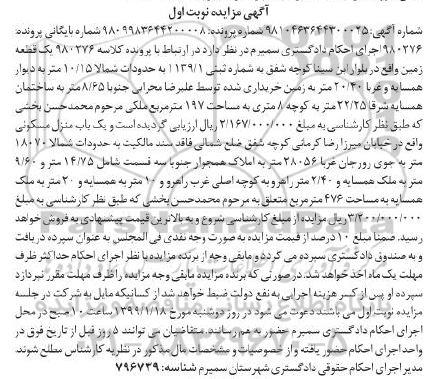 آگهی مزایده نوبت اول
شماره آگهی: ۹۸۱۰۴۶۳۶۴۴۳۰۰۰۲۵ شماره پرونده: ۹۸۰۹۹۸۳۶۴۴۲۰۰۰۰۸ شماره بایگانی پرونده:
۹۸۰۲۷۶ اجرای احکام دادگستری سمیرم در نظر دارد در ارتباط با پرونده کلاسه ۹۸۰۲۷۶ یک قطعه
زمین واقع در بلوار ابن سینا کوچه شفق به شماره ثبتی ۱۱۳۹/۱ به حدودات شمالا ۱۰/۱۵ متر به دیوار
همسایه و غربا ۲۰/۴۰ متر به زمین خریداری شده توسط علیرضا محرابی جنوبا ۸/۶۵ متر به ساختمان
همسایه شرقا ۲۲/۲۵ متر به کوچه ۸ متری به مساحت ۱۹۷ مترمربع ملکی مرحوم محمدحسن بخشی
که طبق نظر کارشناسی به مبلغ ۲/۱۶۷/۰۰۰/۰۰۰ ریال ارزیابی گردیده است و یک باب منزل مسکونی
واقع در خیابان میرزا رضا کرمانی کوچه شفق ضلع شمالی فاقد سند مالکیت به حدودات شمالا ۱۸۰۷۰
متر به جوی رورجان غربا ۲۸۰۵۶ متر به املاک همجوار جنوبا سه قسمت شامل ۱۴/۷۵ متر و ۹/۶۰
متر به ملک همسایه و ۲/۴۰ متر راهرو به کوچه اصلی غرب راهرو و ۱۰ متر به همسایه و ۲۰ متر به ملک
همسایه به مساحت ۴۷۶ مترمربع متعلق به مرحوم محمدحسن بخشی که طبق نظر کارشناسی به مبلغ
۳/۲۰۰/۰۰۰/۰۰۰ ریال مزایده از مبلغ کارشناسی شروع و به بالاترین قیمت پیشنهادی به فروش خواهد
رسید. ضمنا مبلغ ۱۰ درصد از قیمت مزایده به صورت وجه نقدی فی المجلس به عنوان سپرده دریافت
و به صندوق دادگستری سپرده می گردد و مابقی وجه از برنده مزایده با نظر اجرای احکام حداکثر ظرف
مهلت یک ماه اخذ خواهد شد. در صورتی که برنده مزایده مابقی وجه مزایده را ظرف مهلت مقرر نپردازد
سپرده او پس از کسر هزینه اجرایی به نفع دولت ضبط خواهد شد از کسانیکه مایل به شرکت در جلسه
مزایده نوبت اول می باشند دعوت می شود در روز دوشنبه مورخ ۱۳۹۹/۱/۱۸ ساعت ۱۰ صبح در محل
اجرای احکام دادگستری سمیرم حضور به هم رسانند. متقاضیان می توانند ۵ روز قبل از تاریخ فوق در
واحد اجرای احکام حضور یافته و از خصوصیات و مشخصات مال مذکور در نظریه کارشناس مطلع شوند.
مدیر اجرای احکام حقوقی دادگستری شهرستان سمیرم شناسه: ۷۹۶۷۳۹